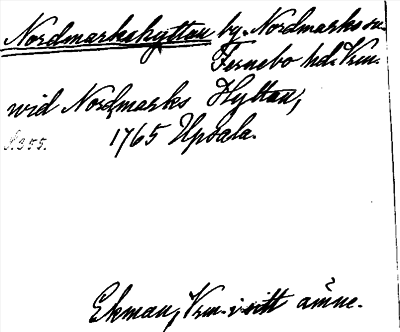 Nordmarkshyttan by. Nordmarks sn.
Fernebo hd. Vrm.
wid Nordmarks Hyttan,
1765 Upsala.
S. 355.
Ekman, Vrm. i sitt ämne.